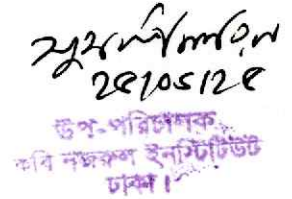 ২৫/০৫/২৫
উপ-পরিচালক
কবি নজরুল ইনস্টিটিউট
ঢাকা।